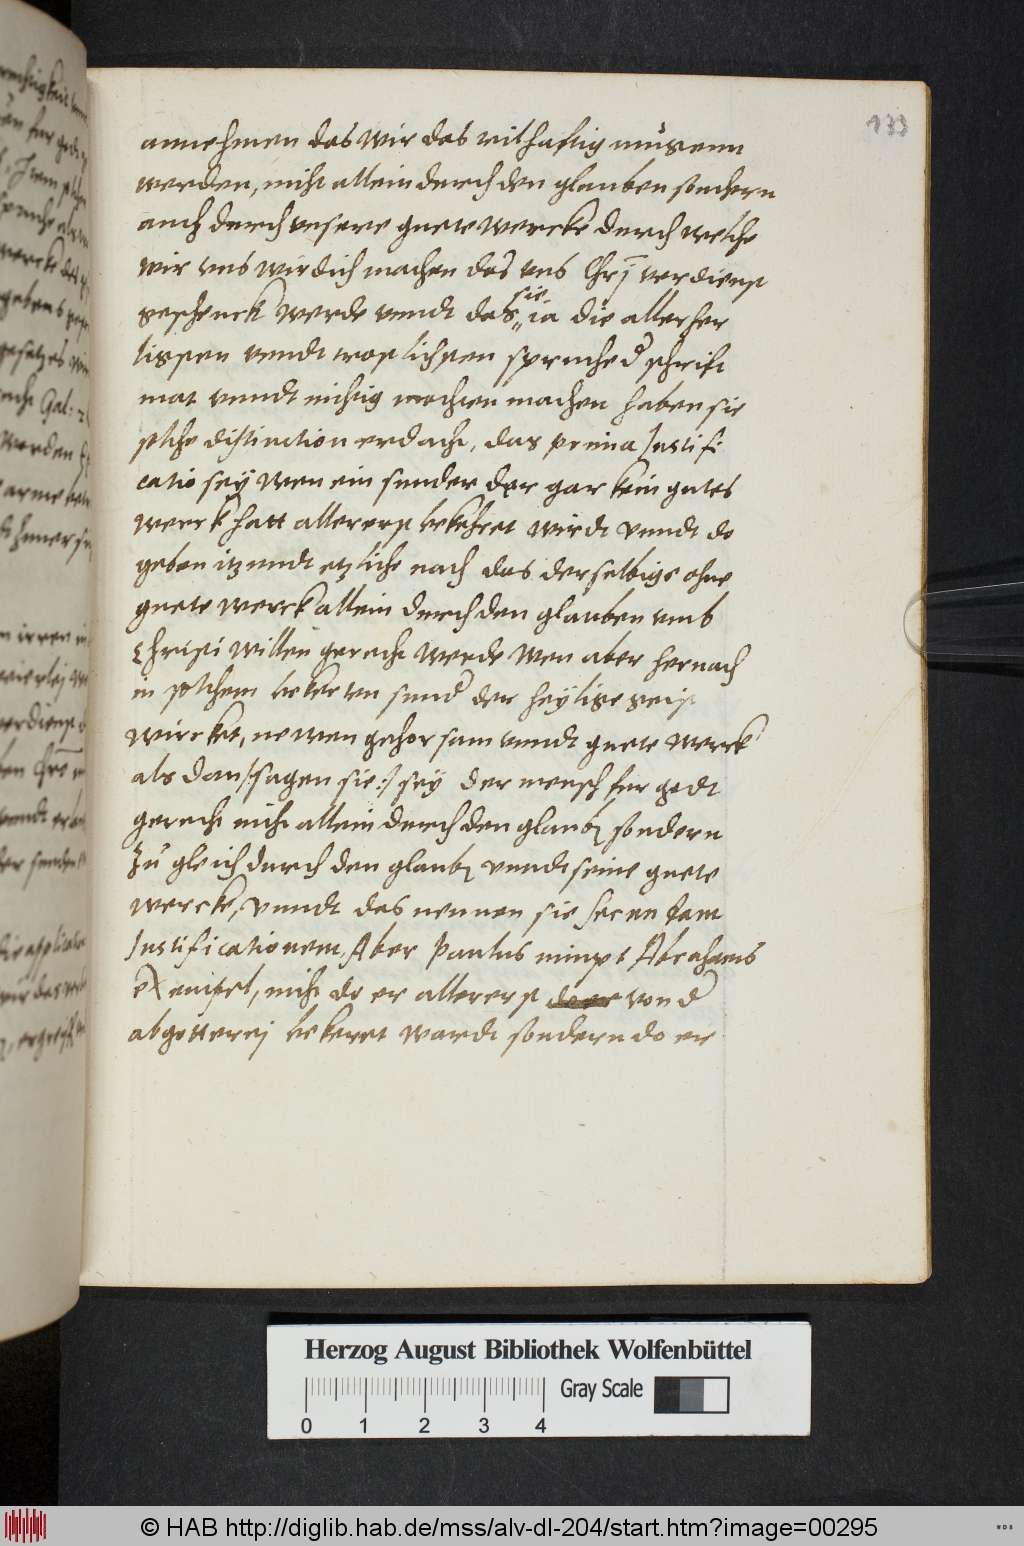 133
annehmen das wir das teilhaftig müsenn
werden, nicht allein durch den glauben sondern
auch durch unsere guete wercke durch welche
wir uns wirdich machen das uns Chrj verdienst
geschenckt werde unndt das sie ia die aller her
lichsten unndt trostlichsten spruche d schrifft
mat unndt nichtig mochten machen haben sie
solche distinction erdacht, das prima Justifi
catio sey wen ein sunder der gar kein gutes
werck hatt allererst bekehret wirdt unndt do
geben itzundt etzliche nach das derselbige ohne
guete werck allein durch den glauben umb
Christi willen gerecht werde wen aber hernach
in solchem bekerten sund der heylige geist
wircket, newen gehorsam unndt guete werck
als dan /:sagen sie:/ sey der mensch fur godt
gerecht nicht allein durch den glaub sondern
zu gleich durch den glaub unndt seine guete
wercke, unndt das nennen sie secundam
Justificationem, Aber Paulus nimpt Abrahams
exempel, nicht do er allererst von d
abgotterej bekeret wardt sondern do er
Herzog August Bibliothek Wolfenbüttel
0 1 2 3 4
Gray Scale
© HAB http://diglib.hab.de/mss/alv-dl-204/start.htm?image=00295